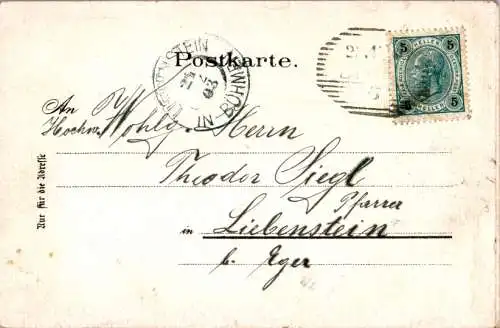 Postkarte.
LIEBENSTEIN
IN BÖHMEN
5 HELLER 5
5 HELLER 5
An
Hochw. Wohlg. Herrn
Theodor Siegl
Pfarrer
in Liebenstein
b. Eger
Nur für die Adresse